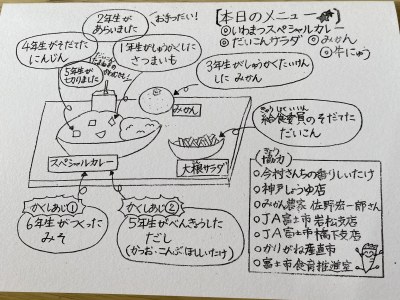 [本日のメニュー]
◎いわまつスペシャルカレー
◎だいこんサラダ ◎みかん
◎牛にゅう
2年生が
あらいました
おきったい!
4年生がそだてた
にんじん
1年生がしゅうかくした
さつまいも
5年生が
七りました
3年生がしゅうかくたいけん
した みかん
みかん
きゅうしょくいいん
給食委員のそだてた
だいこん
スペシャルカレー
大根サラダ
かくしあじ①
6年生がつくった
みそ
かくしあじ②
5年生がべんきょうした
だし
(かつお・こんぶ・ほししいたけ)
きょうりょく
協力
○今村さんちの香りしいたけ
○神戸しょうゆ店
○みかん農家 佐野宏一郎さん
○JA富士市岩松支店
○JA富士市橋下支店
○かりがね産直市
○富士市食育推進室